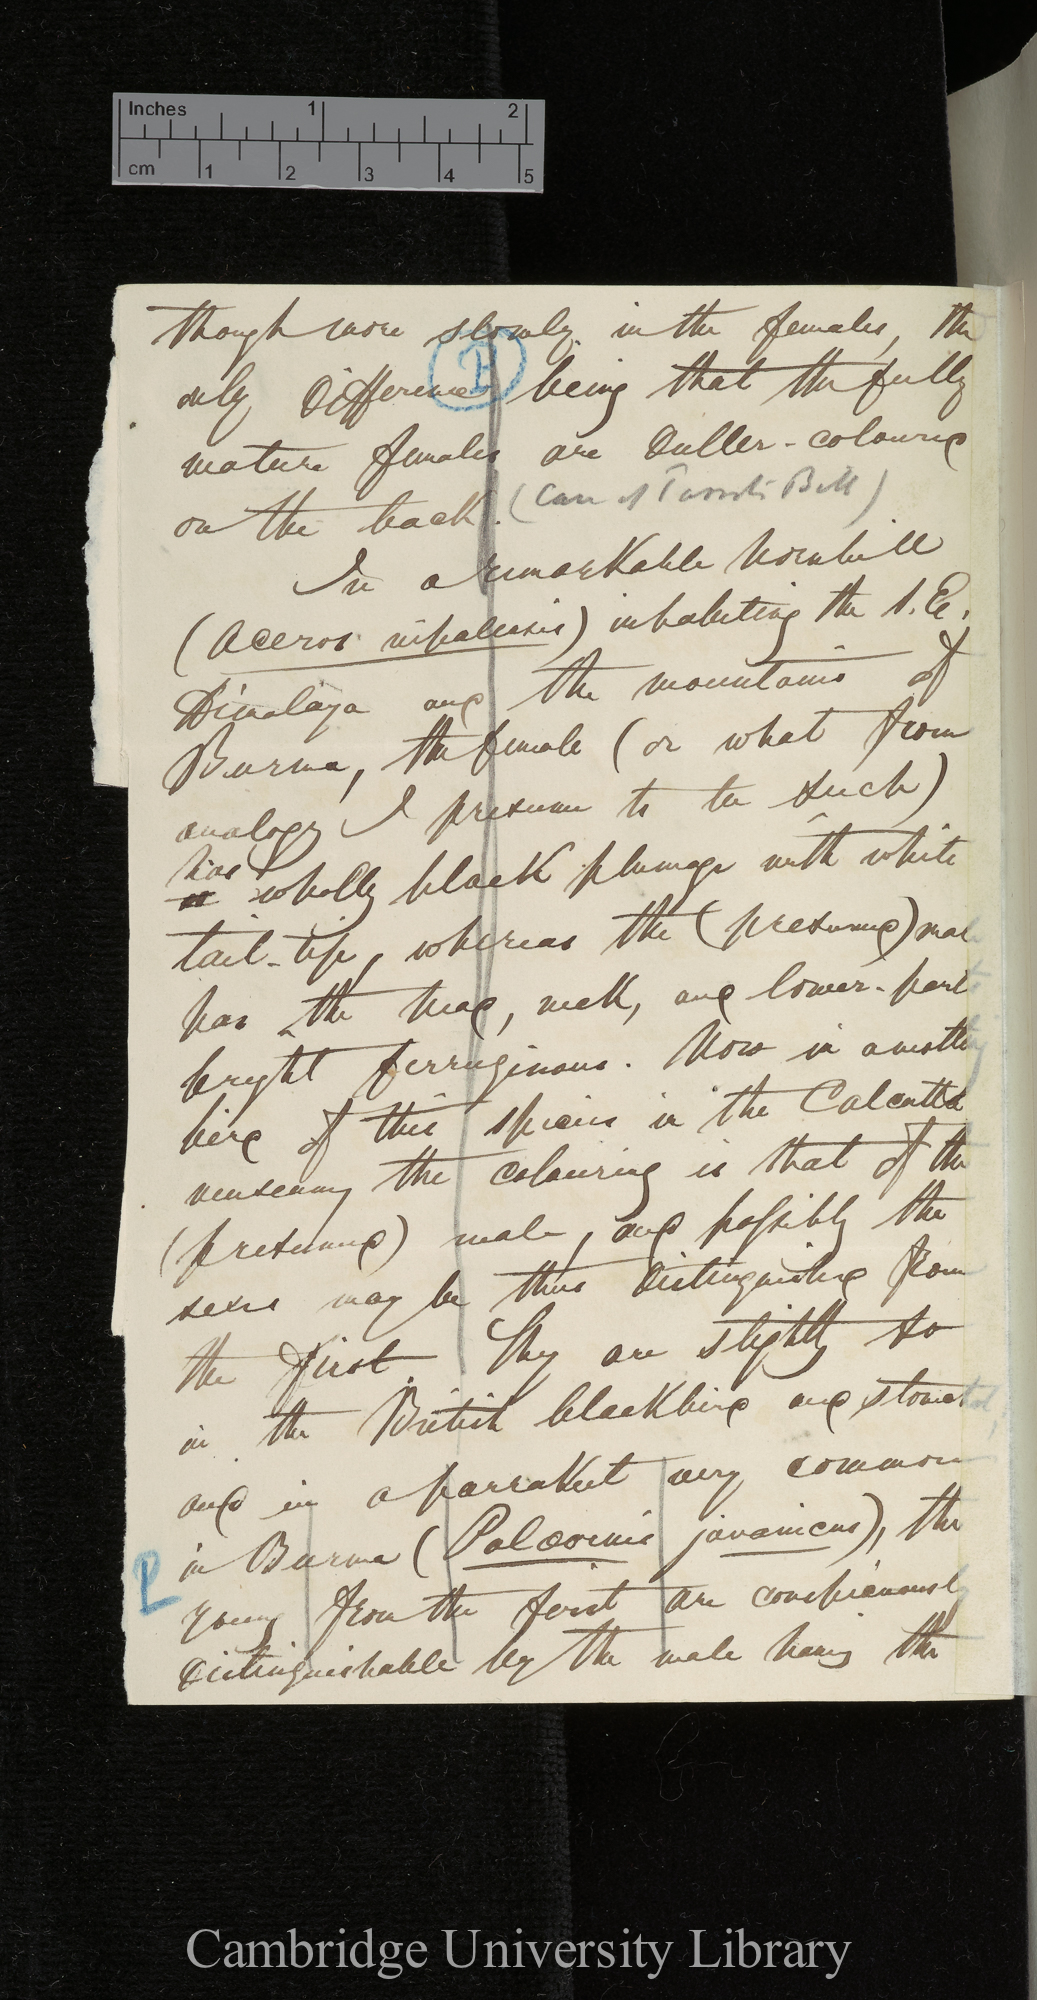 Inches 1 2
cm 1 2 3 4 5
though more slowly in the females, the
only difference being that the fully
mature females are duller-coloured
on the back. (Case of Parrots Bill)
In a remarkable hornbill
(Aceros nipalensis) inhabiting the S.E.
Himalaya and the mountains of
Burma, the female (or what from
analogy I presume to be such)
has
wholly black plumage with white
tail-tip, whereas the (presumed) male
has the head, neck, and lower-parts
bright ferruginous. Now in a nestling
bird of this species in the Calcutta
museum the colouring is that of the
(presumed) male, and possibly the
sexes may be thus distinguished from
the first. They are slightly so
in the British blackbird and stonechat,
and in a parrakeet very common
in Burma (Palæornis javanicus), the
P
young from the first are conspicuously
distinguishable by the male having the
Cambridge University Library